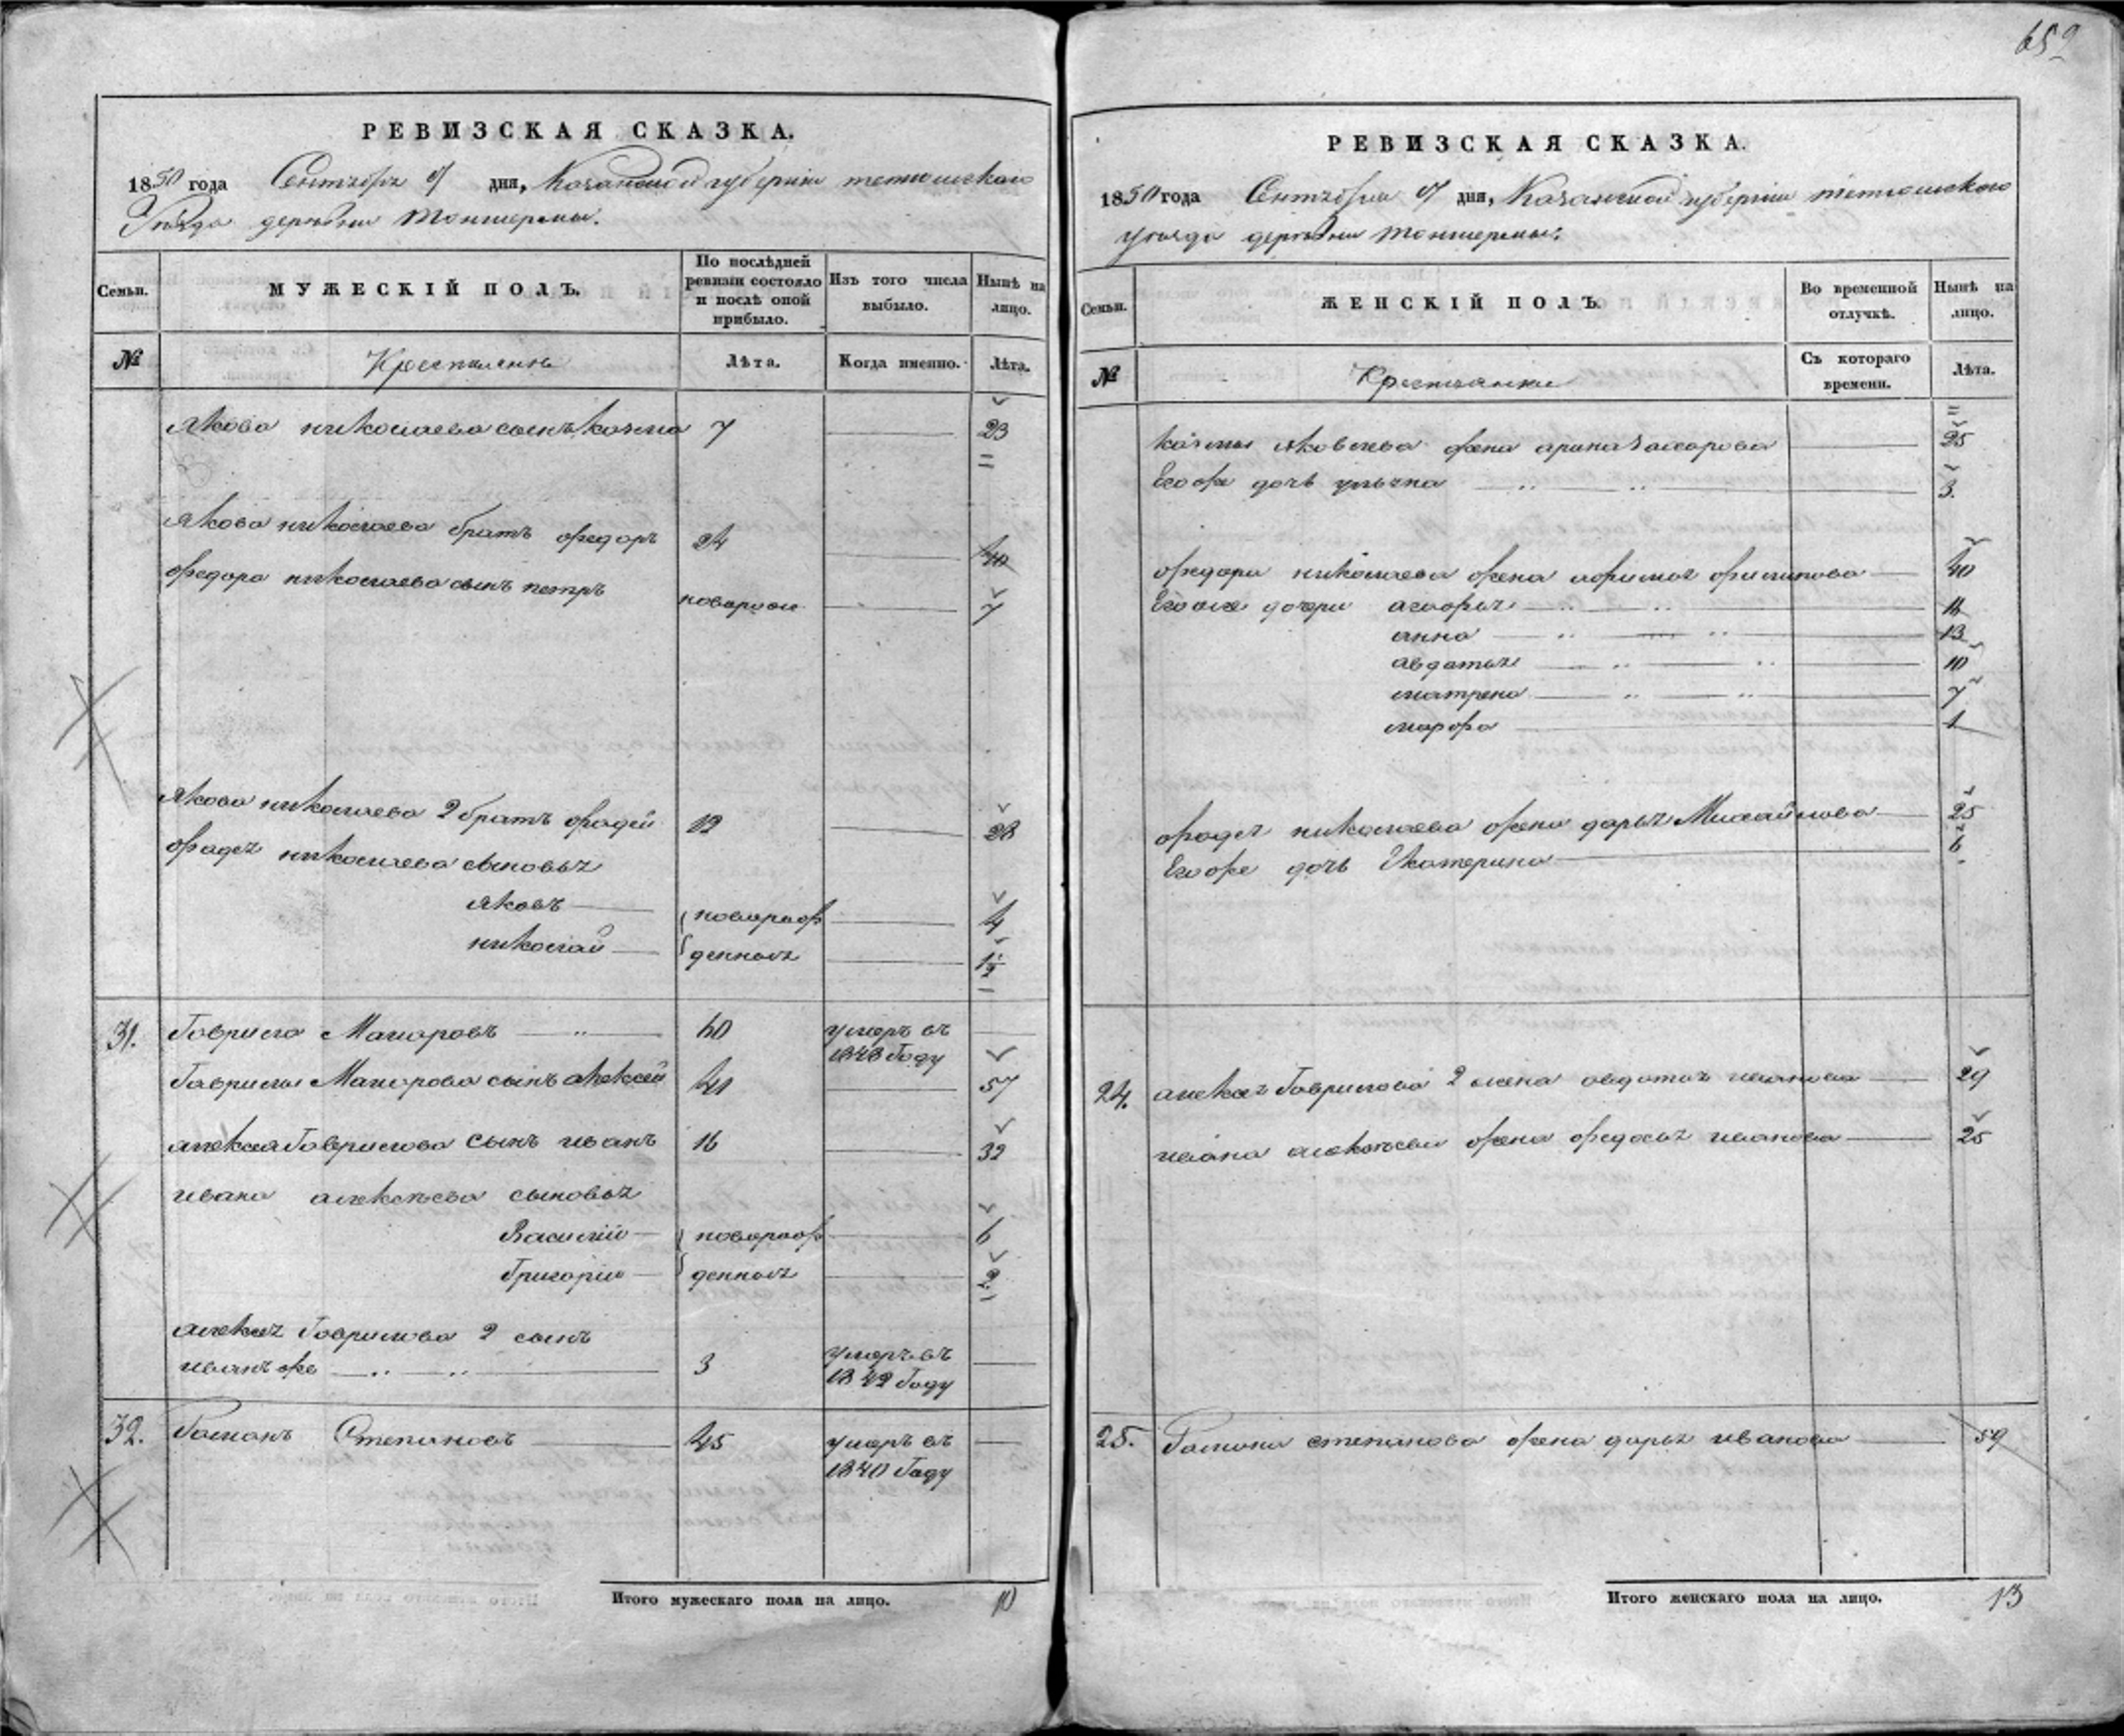 659
РЕВИЗСКАЯ СКАЗКА.
1850 года Сентября дня, Казанской губернии тетюшскаго
Уезда деревни
Семьи.
МУЖЕСКІЙ ПОЛЪ.
По послѣдней ревизіи состояло и послѣ оной прибыло.
Изъ того числа выбыло.
Нынѣ на лицо.
№
Крестьяне
Лѣта.
Когда именно.
Лѣта.
Якова николаева сынъ козма 7 23
Якова николаева братъ федоръ 24 40
федора николаева сынъ петръ 7
Якова николаева 2 братъ фадей 12 28
фадея николаева сыновья
Яковъ новорож 4
николай денныя 1 1/2
31. Гаврила Макаровъ 60 умеръ въ
1848 Году
Гаврилы Макарова сынъ алексей 41 57
алексея Гаврилова сынъ иванъ 16 32
ивана алексѣева сыновья
Василий новорож 6
Григорий денныя 2
алексея Гаврилова 2 сынъ
иванъ же 3 умеръ въ
1842 Году
32. Романъ Степановъ 45 умеръ въ
1840 Году
Итого мужескаго пола на лицо. 10
РЕВИЗСКАЯ СКАЗКА.
1850 года Сентября дня, Казанской губернии тетюшскаго
уезда деревни
Семьи.
ЖЕНСКІЙ ПОЛЪ
Во временной отлучкѣ.
Нынѣ на лицо.
№
Крестьянки
Съ котораго времени.
Лѣта.
козмы Яковлева жена арина 25
Его же дочь 3
федора николаева жена филипова 40
Его же дочери агафья
анна 13
авдотья 10
матрена 7
марфа 1
фадея николаева жена дарья Михайлова 25
Его же дочь Екатерина 6
24. алексея Гаврилова 2 жена авдотья иванова 29
ивана алексѣева жена федосья иванова 25
25. Романа степанова жена дарья иванова 59
Итого женскаго пола на лицо. 13